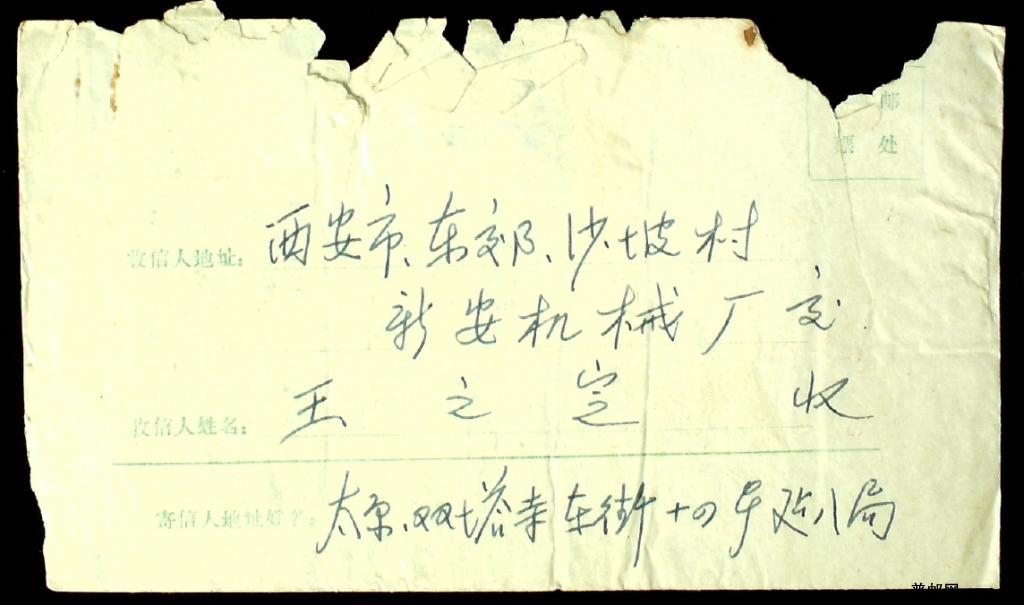 邮
票 处
收信人地址：西安市、东郊、沙坡村
新安机械厂交
收信人姓名：王之定 收
寄信人地址姓名：太原、双塔寺东街十四号 八局
普邮网